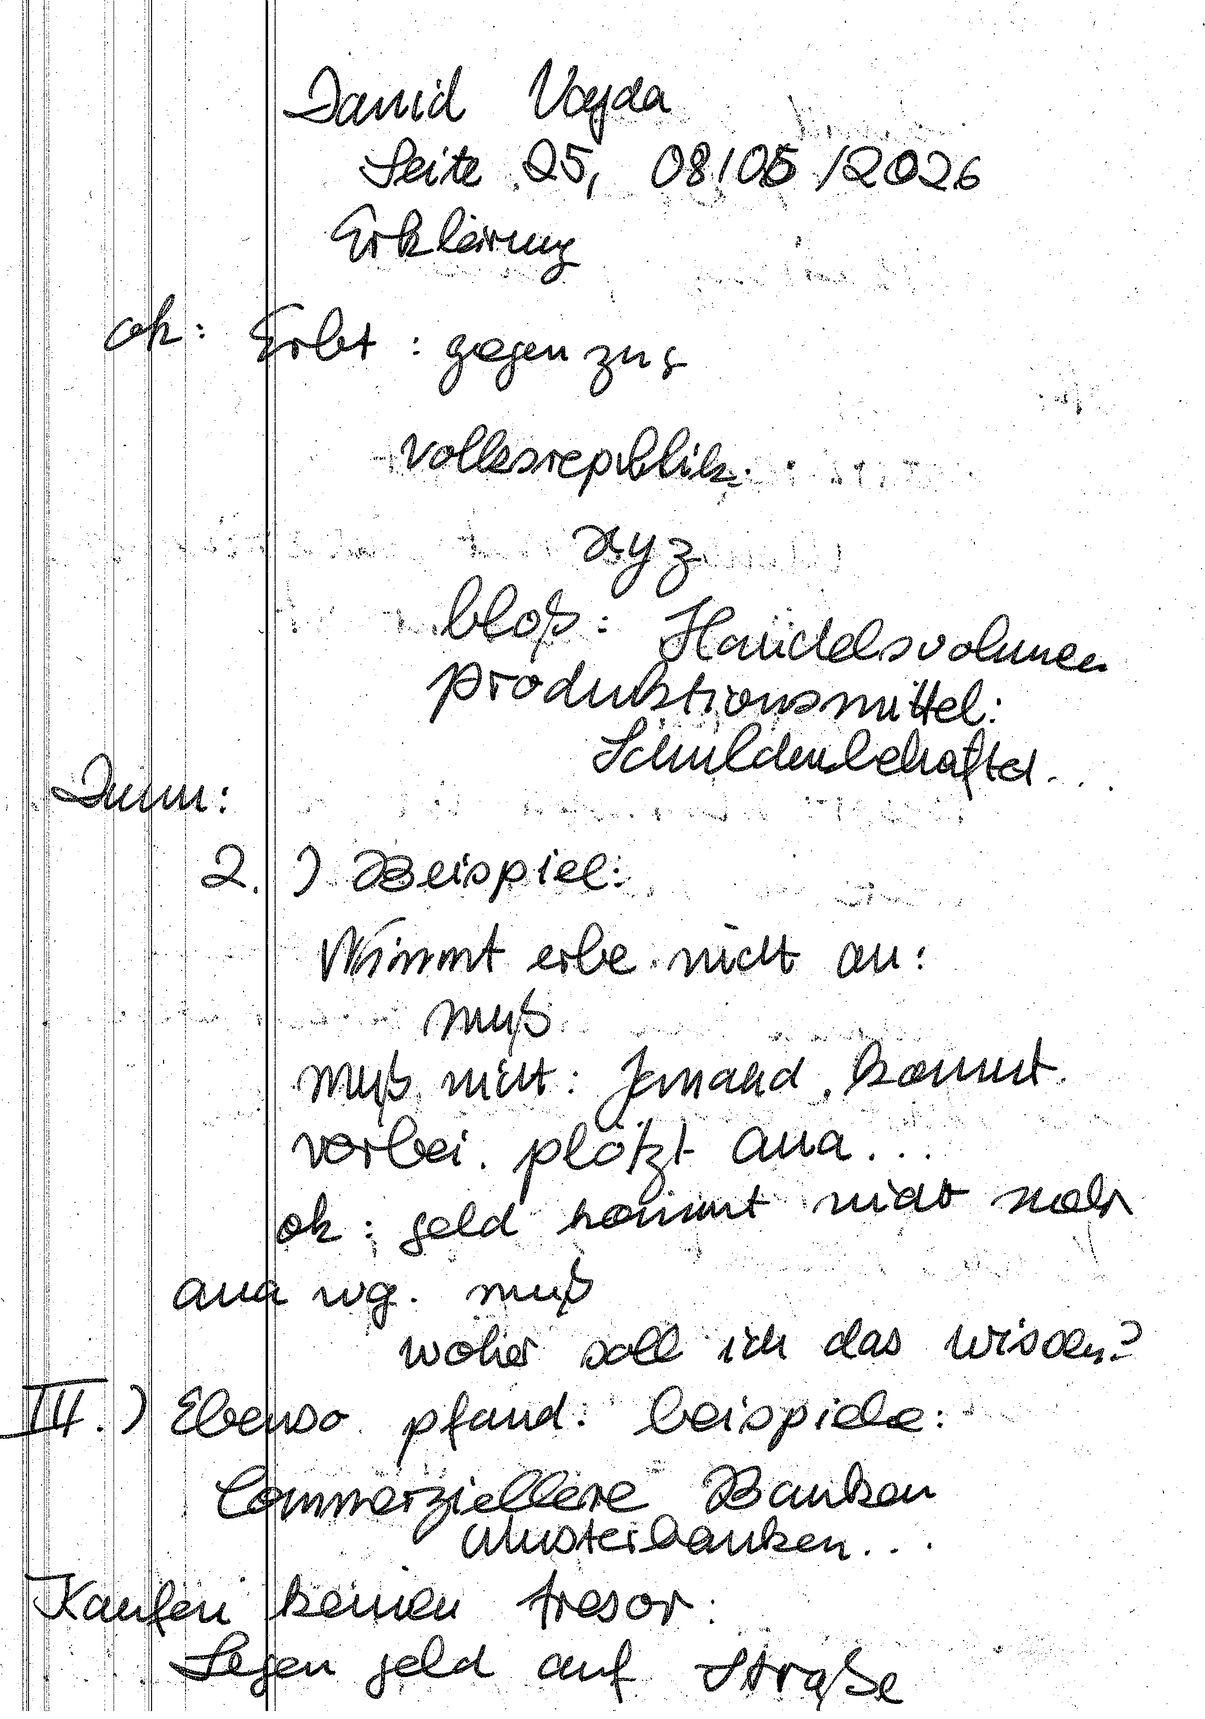 David Vajda
Seite 25, 08/05/2026
Erklärung
ok: Erbt: gegenzug
Volksrepublik:
xyz
bloß: Handelsvolumen
produktionsmittel:
Schuldenbehaftet...
Dumm:
2.) Beispiel:
Nimmt erbe nicht an:
muß
muß nicht: Jemand kommt
vorbei. plötzt ana...
ok: geld kommt nicht mehr
ana wg. muß
woher soll ich das wissen?
III.) Ebenso pfand: beispiele:
Commerziellere Banken
Musterbanken...
Kaufen keinen tresor:
Legen geld auf Straße